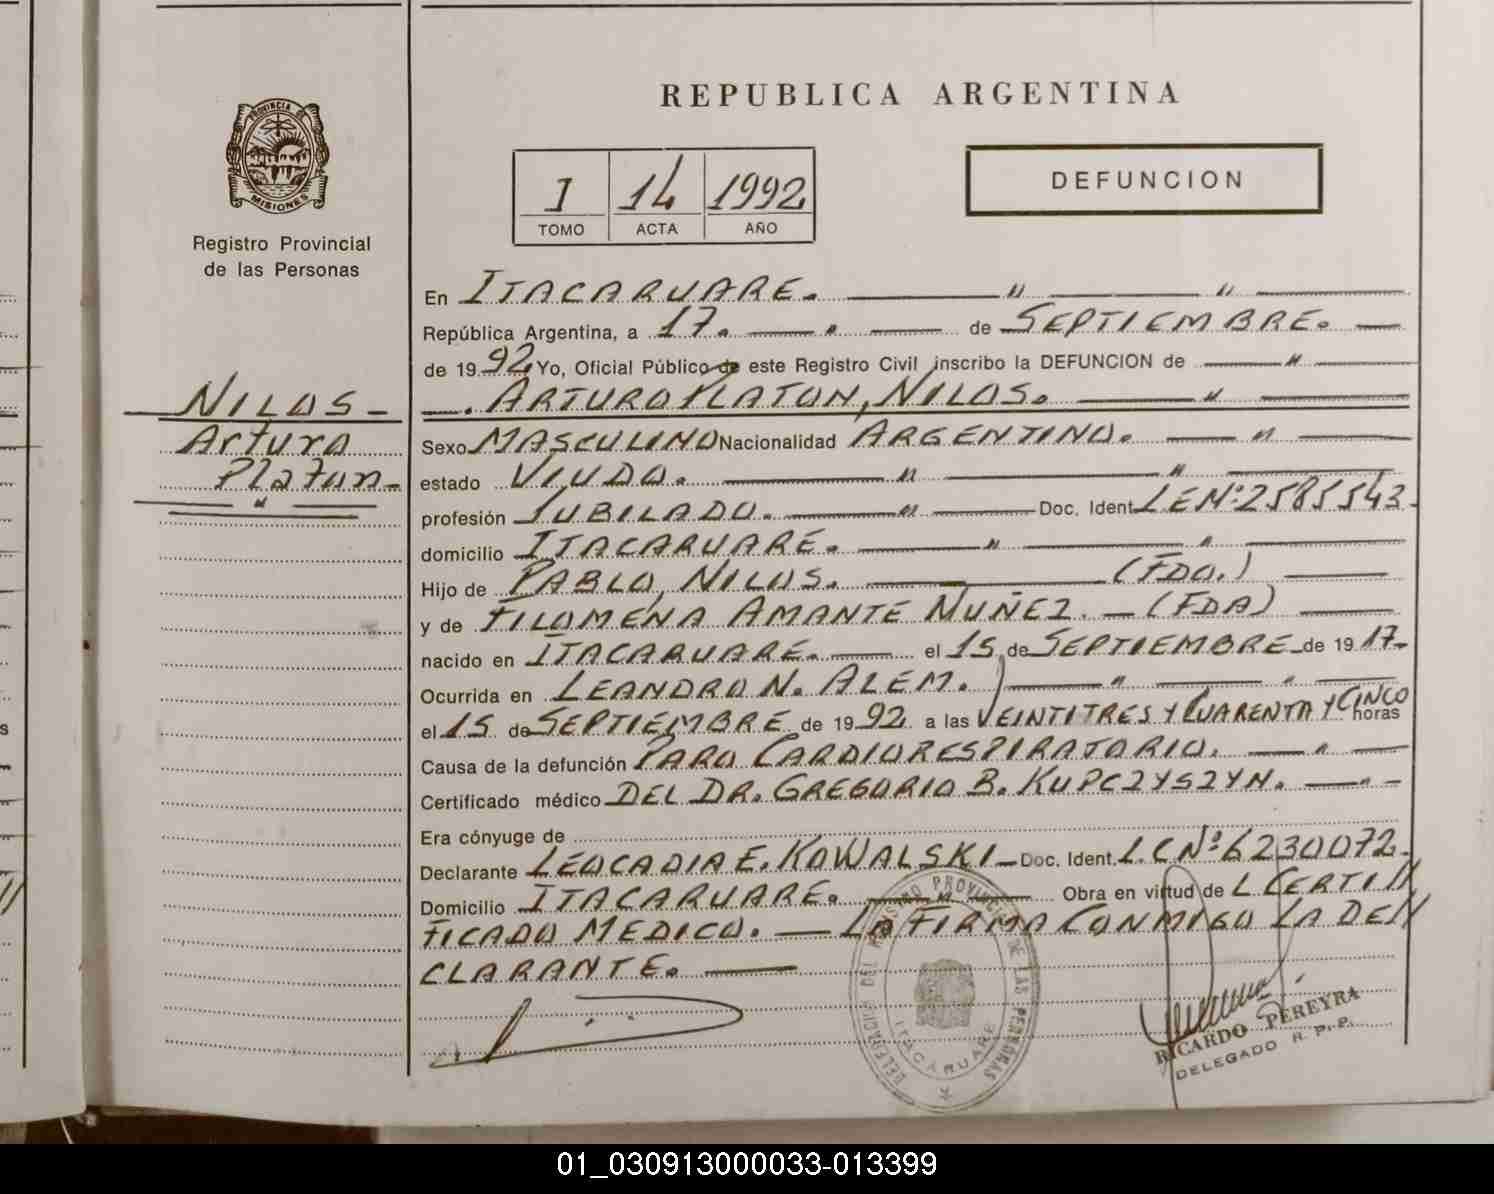 REPUBLICA ARGENTINA
PROVINCIA DE
MISIONES
Registro Provincial
de las Personas
I 14 1992
TOMO ACTA AÑO
DEFUNCION
En ITACARUARE. — " — " —
República Argentina, a 17. — " — de SEPTIEMBRE. —
de 1992 Yo, Oficial Público de este Registro Civil inscribo la DEFUNCION de — " —
—. ARTURO PLATON, NILOS. — " —
NILOS —
Arturo
Platon —
— " —
Sexo MASCULINO Nacionalidad ARGENTINO. — " —
estado VIUDO. — " — " —
profesión JUBILADO. — " — Doc. Ident. L E Nº 2585543 -
domicilio ITACARUARE. — " — " —
Hijo de PABLO, NILOS. — (FDO.) —
y de FILOMENA AMANTE NUÑEZ. — (FDA) —
nacido en ITACARUARE. — el 15 de SEPTIEMBRE de 1917-
Ocurrida en LEANDRO N. ALEM. — " — " —
el 15 de SEPTIEMBRE de 1992 a las VEINTITRES Y CUARENTA Y CINCO horas
Causa de la defunción PARO CARDIORESPIRATORIO. — " —
Certificado médico DEL DR. GREGORIO B. KUPCZYSZYN. — " -
Era cónyuge de
Declarante LEOCADIA E. KOWALSKI — Doc. Ident. L.C Nº 6230072-
Domicilio ITACARUARE. — " — Obra en virtud de L CERTI//
FICADO MEDICO. — LA FIRMA CONMIGO LA DE//
CLARANTE. —
DELEGACION DEL REGISTRO PROVINCIAL DE LAS PERSONAS
ITACARUARE
RICARDO PEREYRA
DELEGADO R. P. P.
01_030913000033-013399